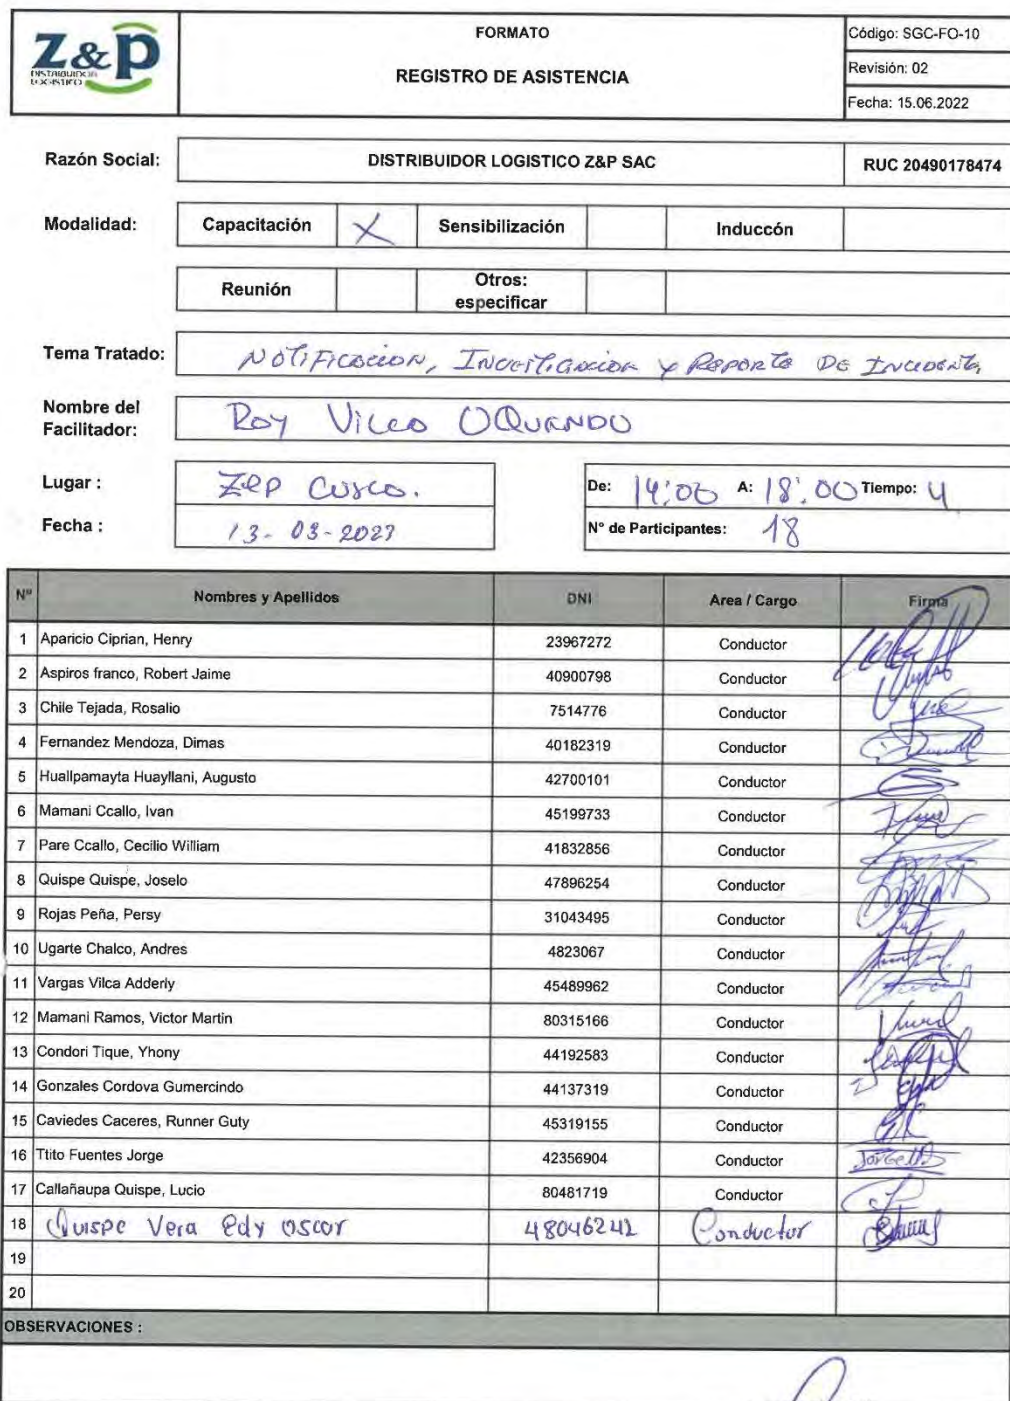 Z&P
DISTRIBUIDOR
LOGISTICO
FORMATO
REGISTRO DE ASISTENCIA
Código: SGC-FO-10
Revisión: 02
Fecha: 15.06.2022
Razón Social: DISTRIBUIDOR LOGISTICO Z&P SAC RUC 20490178474
Modalidad: Capacitación X Sensibilización Induccón
Reunión Otros: especificar
Tema Tratado: Notificacion, Investigacion y Reporte de Incidente
Nombre del Facilitador: Roy Vilca OQUENDO
Lugar : Z&P Cusco.
De: 14:00 A: 18:00 Tiempo: 4
Fecha : 13-03-2023
N° de Participantes: 18
N° Nombres y Apellidos DNI Area / Cargo Firma
1 Aparicio Ciprian, Henry 23967272 Conductor
2 Aspiros franco, Robert Jaime 40900798 Conductor
3 Chile Tejada, Rosalio 7514776 Conductor
4 Fernandez Mendoza, Dimas 40182319 Conductor
5 Huallpamayta Huayllani, Augusto 42700101 Conductor
6 Mamani Ccallo, Ivan 45199733 Conductor
7 Pare Ccallo, Cecilio William 41832856 Conductor
8 Quispe Quispe, Joselo 47896254 Conductor
9 Rojas Peña, Persy 31043495 Conductor
10 Ugarte Chalco, Andres 4823067 Conductor
11 Vargas Vilca Adderly 45489962 Conductor
12 Mamani Ramos, Victor Martin 80315166 Conductor
13 Condori Tique, Yhony 44192583 Conductor
14 Gonzales Cordova Gumercindo 44137319 Conductor
15 Caviedes Caceres, Runner Guty 45319155 Conductor
16 Ttito Fuentes Jorge 42356904 Conductor
17 Callañaupa Quispe, Lucio 80481719 Conductor
18 Quispe Vera Edy Oscar 48046241 Conductor
19
20
OBSERVACIONES :